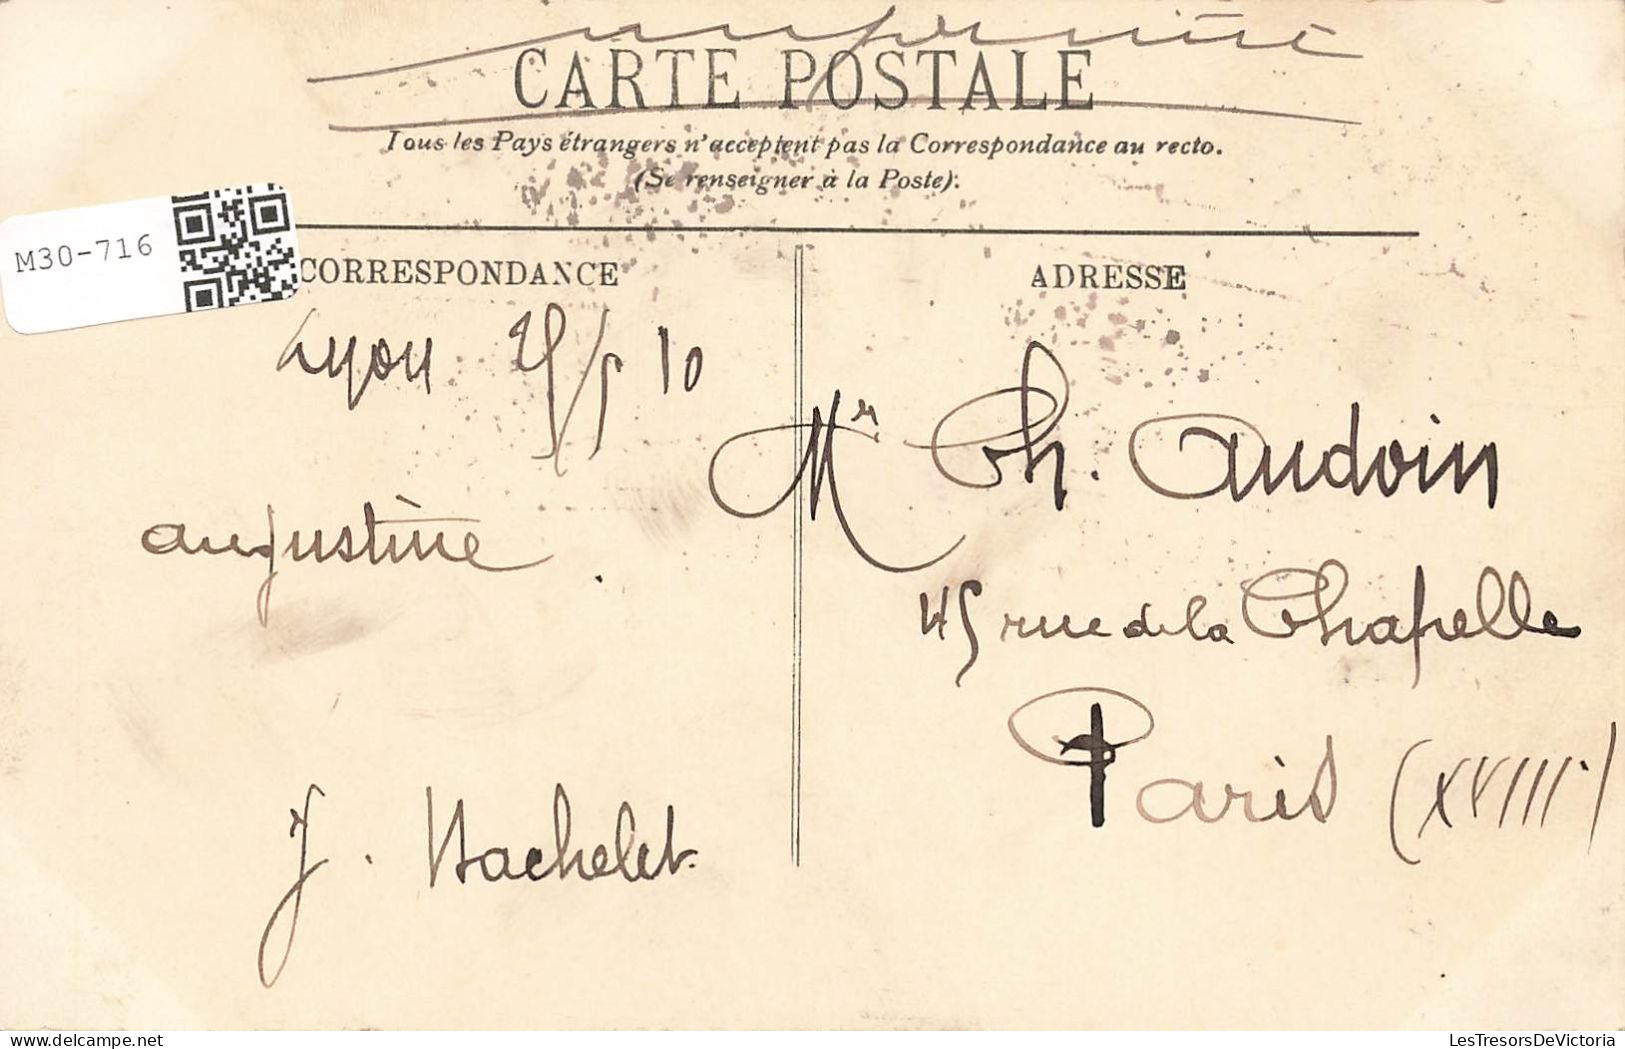 imprimé
CARTE POSTALE
Tous les Pays étrangers n'acceptent pas la Correspondance au recto.
(Se renseigner à la Poste).
M30-716
CORRESPONDANCE
Lyon 25/5 10
augustine
J. Bachelet
ADRESSE
Mr Ch. Audoin
45 rue de la Chapelle
Paris (XVIII)
LesTresorsDeVictoria